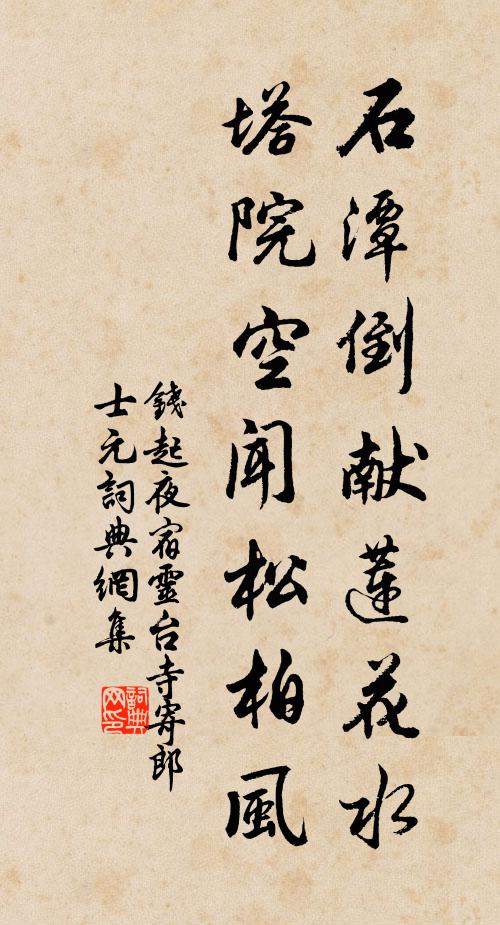 石潭倒献蓮花水
塔院空聞松柏風
錢起夜宿靈台寺寄郎
士元詞典網集
詞典
网印